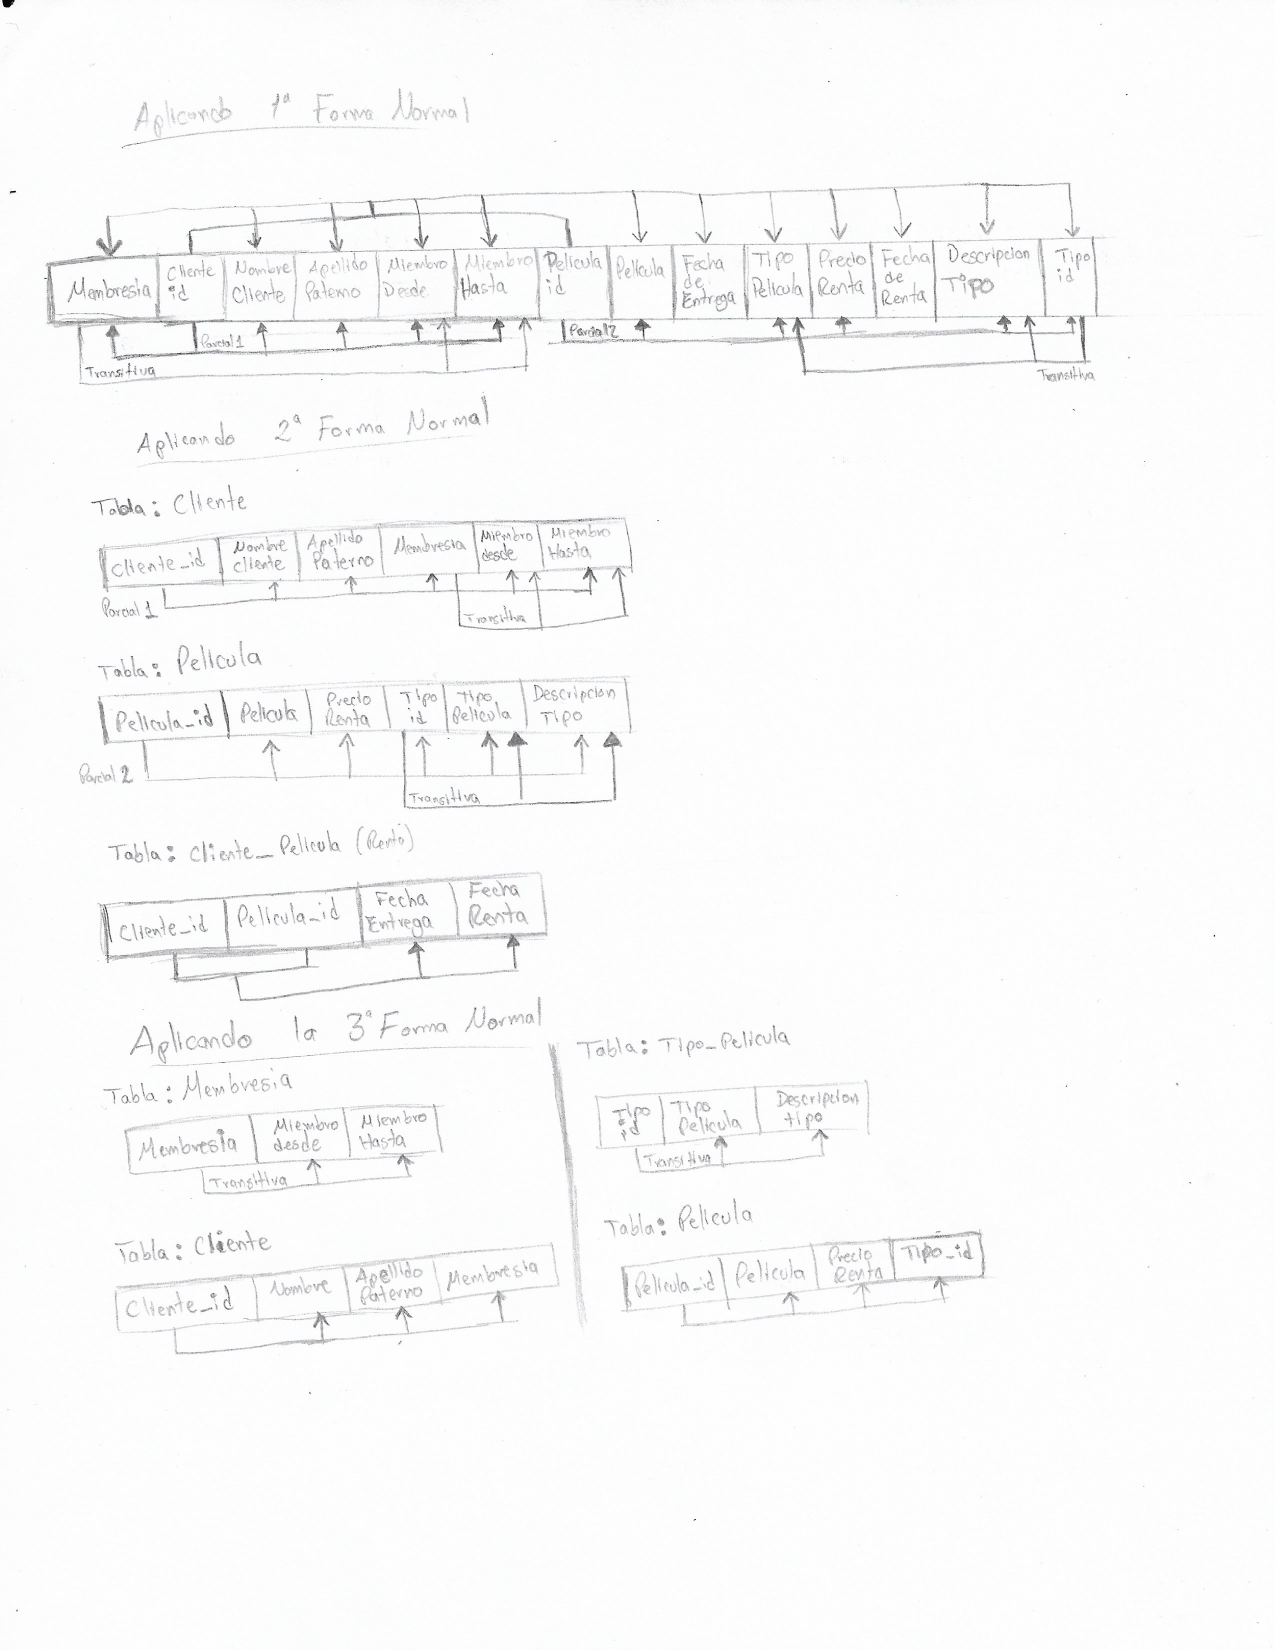 Aplicando 1ª Forma Normal
Membresia Cliente id Nombre Cliente Apellido Paterno Miembro Desde Miembro Hasta Pelicula id Pelicula Fecha de Entrega Tipo Pelicula Precio Renta Fecha de Renta Descripcion Tipo Tipo id
Parcial 1 Parcial 2
Transitiva Transitiva
Aplicando 2ª Forma Normal
Tabla: Cliente
Cliente_id Nombre cliente Apellido Paterno Membresia Miembro desde Miembro Hasta
Parcial 1 Transitiva
Tabla: Pelicula
Pelicula_id Pelicula Precio Renta Tipo id Tipo Pelicula Descripcion Tipo
Parcial 2
Transitiva
Tabla: Cliente_Pelicula (Renta)
Cliente_id Pelicula_id Fecha Entrega Fecha Renta
Aplicando la 3ª Forma Normal
Tabla: Membresia
Membresia Miembro desde Miembro Hasta
Transitiva
Tabla: Cliente
Cliente_id Nombre Apellido Paterno Membresia
Tabla: Tipo_Pelicula
Tipo id Tipo Pelicula Descripcion tipo
Transitiva
Tabla: Pelicula
Pelicula_id Pelicula Precio Renta Tipo_id